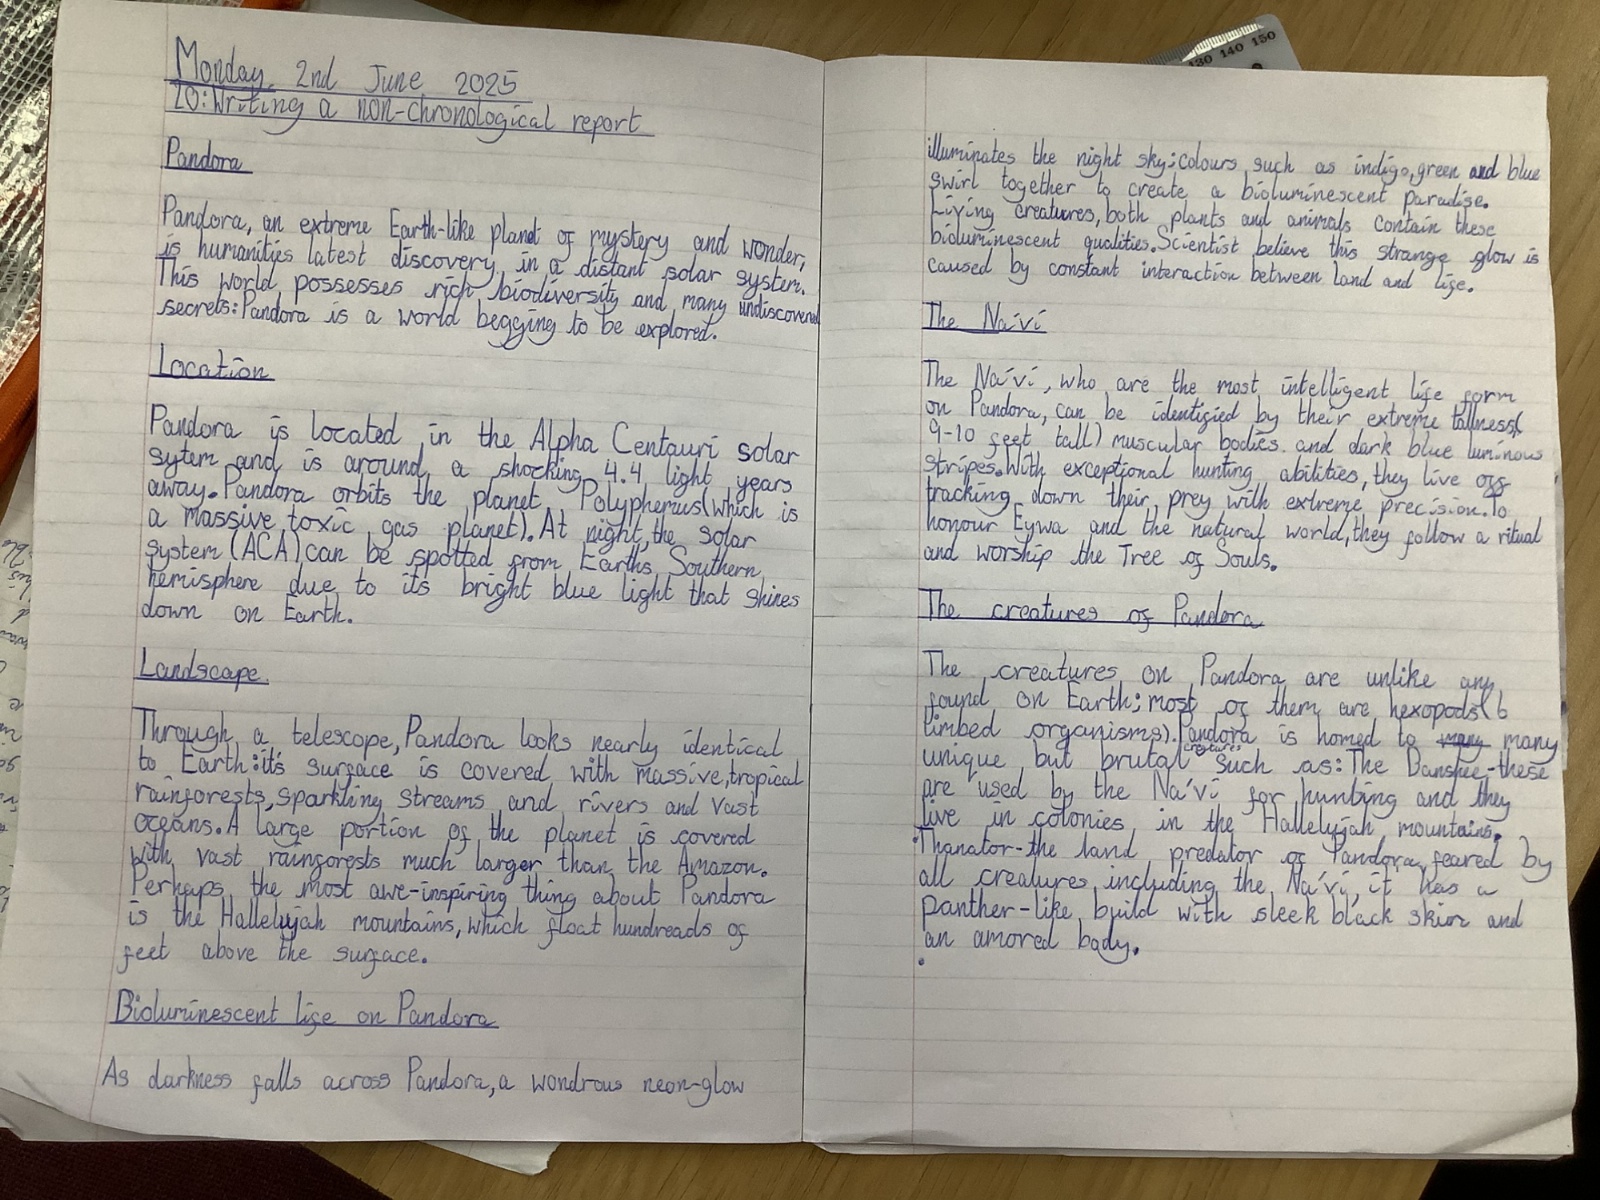 Monday 2nd June 2025
LO: Writing a non-chronological report
Pandora
Pandora, an extreme Earth-like planet of mystery and wonder,
is humanities latest discovery in a distant solar system.
This world possesses rich biodiversity and many undiscovered
secrets: Pandora is a world begging to be explored.
Location
Pandora is located in the Alpha Centauri solar
sytem and is around a shocking 4.4 light years
away. Pandora orbits the planet Polyphemus (which is
a massive toxic gas planet). At night, the solar
system (ACA) can be spotted from Earths Southern
hemisphere due to its bright blue light that shines
down on Earth.
Landscape
Through a telescope, Pandora looks nearly identical
to Earth: it's surface is covered with massive, tropical
rainforests, sparkling streams and rivers and vast
oceans. A large portion of the planet is covered
with vast rainforests much larger than the Amazon.
Perhaps the most awe-inspiring thing about Pandora
is the Hallelujah mountains, which float hundreads of
feet above the surface.
Bioluminescent life on Pandora
As darkness falls across Pandora, a wondrous neon-glow
illuminates the night sky: colours such as indigo, green and blue
swirl together to create a bioluminescent paradise.
Living creatures, both plants and animals contain these
bioluminescent qualities. Scientist believe this strange glow is
caused by constant interaction between land and life.
The Na'vi
The Na'vi, who are the most intelligent life form
on Pandora, can be identified by their extreme tallness (
9-10 feet tall) muscular bodies and dark blue luminous
stripes. With exceptional hunting abilities, they live off
tracking down their prey with extreme precision. To
honour Eywa and the natural world, they follow a ritual
and worship the Tree of Souls.
The creatures of Pandora
The creatures on Pandora are unlike any
found on Earth; most of them are hexopods (6
limbed organisms). Pandora is homed to many many
unique but brutal creatures such as: The Banshee-these
are used by the Na'vi for hunting and they
live in colonies in the Hallelujah mountains.
• Thanator-the land predator of Pandora, feared by
all creatures including the Na'vi, it has a
panther-like build with sleek black skin and
an amored body.
•
130 140 150